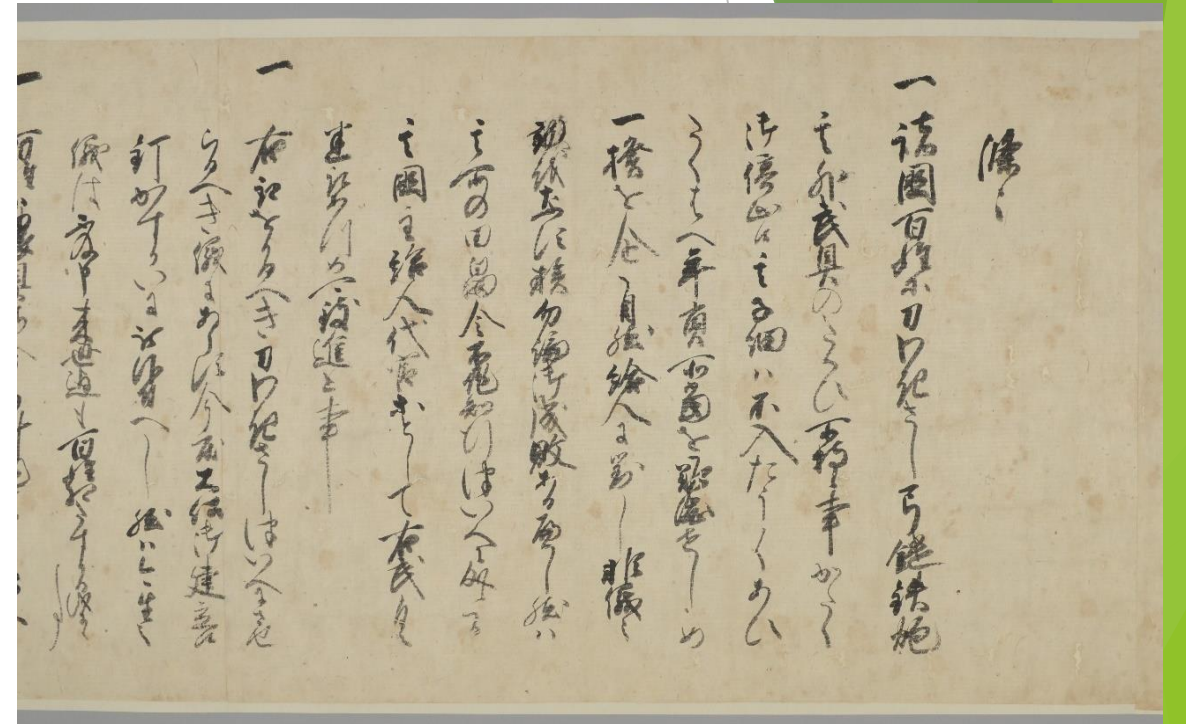 條々
一諸國百姓等刀わきさし弓鑓鉄炮
其外武具のたくひ所持候事かたく
御停止候其子細ハ不入たうくあひ
たくはへ年貢所當を難渋せしめ
一揆を企自然給人に對し非儀之
勿論御成敗あるへし然ハ
其所の田畠令不作知行ついへに成候間
其國主給人代官等として右武具
悉取あつめ可致進上事
一右取をかるへき刀わきさしついへにさせ
らるへき儀にあらす今度大仏御建立候
釘かすかひに被仰付へし然ハ今生之
儀は不申来世迄も百姓相たすかる儀に
一